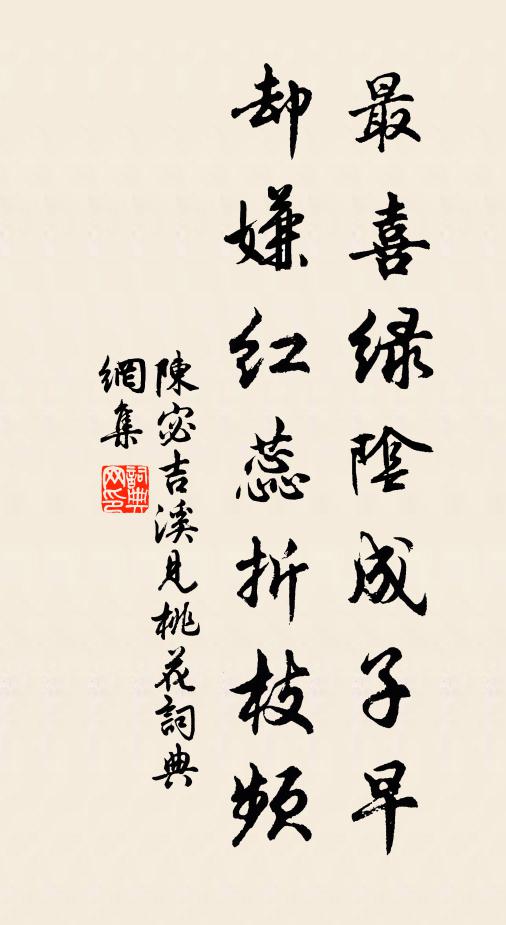 最喜緑陰成子早
却嫌紅蕊折枝頻
陳宓吉溪見桃花詞典
網集
詞典
网印